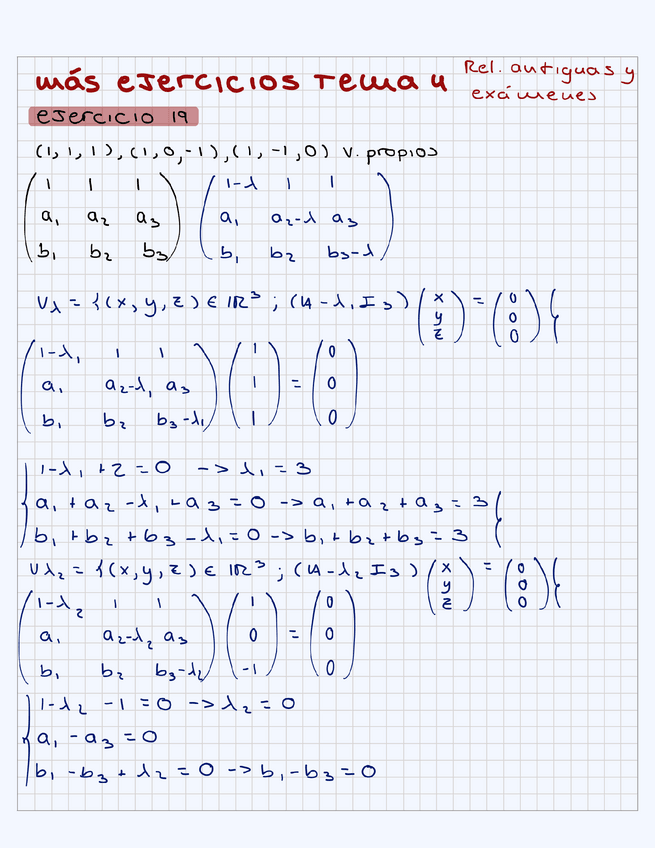 más ejercicios Tema 4
Rel. antiguas y
exámenes
ejercicio 19
(1,1,1),(1,0,-1),(1,-1,0) v. propios
( 1 1 1 ) ( 1-λ 1 1 )
( a₁ a₂ a₃ ) ( a₁ a₂-λ a₃ )
( b₁ b₂ b₃ ) ( b₁ b₂ b₃-λ )
Vλ = {(x,y,z) ∈ IR³ ; (A-λ₁I₃) (x y z) = (0 0 0) {
( 1-λ₁ 1 1 ) ( 1 ) ( 0 )
( a₁ a₂-λ₁ a₃ ) ( 1 ) = ( 0 )
( b₁ b₂ b₃-λ₁ ) ( 1 ) ( 0 )
1-λ₁ +2 = 0 -> λ₁ = 3
a₁ + a₂ -λ₁ + a₃ = 0 -> a₁ + a₂ + a₃ = 3
b₁ + b₂ + b₃ -λ₁ = 0 -> b₁ + b₂ + b₃ = 3
Vλ₂ = {(x,y,z) ∈ IR³ ; (A-λ₂ I₃) (x y z) = (0 0 0) {
( 1-λ₂ 1 1 ) ( 1 ) ( 0 )
( a₁ a₂-λ₂ a₃ ) ( 0 ) = ( 0 )
( b₁ b₂ b₃-λ₂ ) ( -1 ) ( 0 )
1-λ₂ -1 = 0 -> λ₂ = 0
a₁ - a₃ = 0
b₁ - b₃ + λ₂ = 0 -> b₁ - b₃ = 0